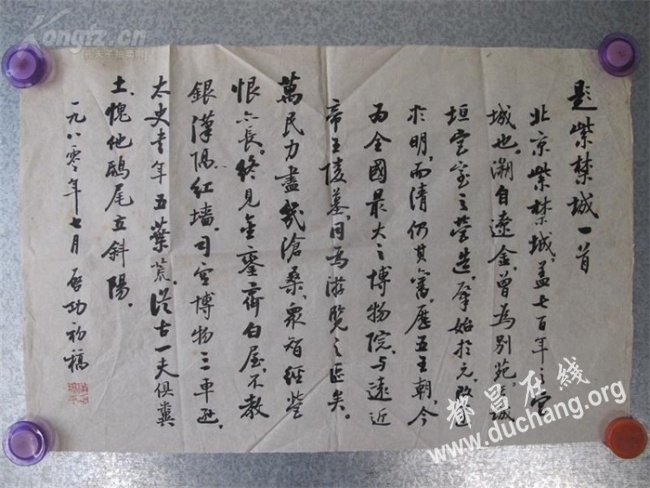 題紫禁城一首
北京紫禁城,蓋七百年之宮
城也。溯自遼金,曾為別苑,城
垣宮室之營造,肇始於元,改建
於明,而清仍其舊,歷五王朝,今
為全國最大之博物院,與遠近
帝王陵墓,同為游覽之區矣。
萬民力盡幾滄桑,眾智經營
恨六長。終見金鑾齊白屋,不教
銀漢隔紅墻。司空博物三車
太史書年五葉荒。從古一夫俱糞
土,愧他鴟尾立斜陽。
一九八〇年七月 啟功初稿
Kongfz.cn
都昌在线
www.duchang.org